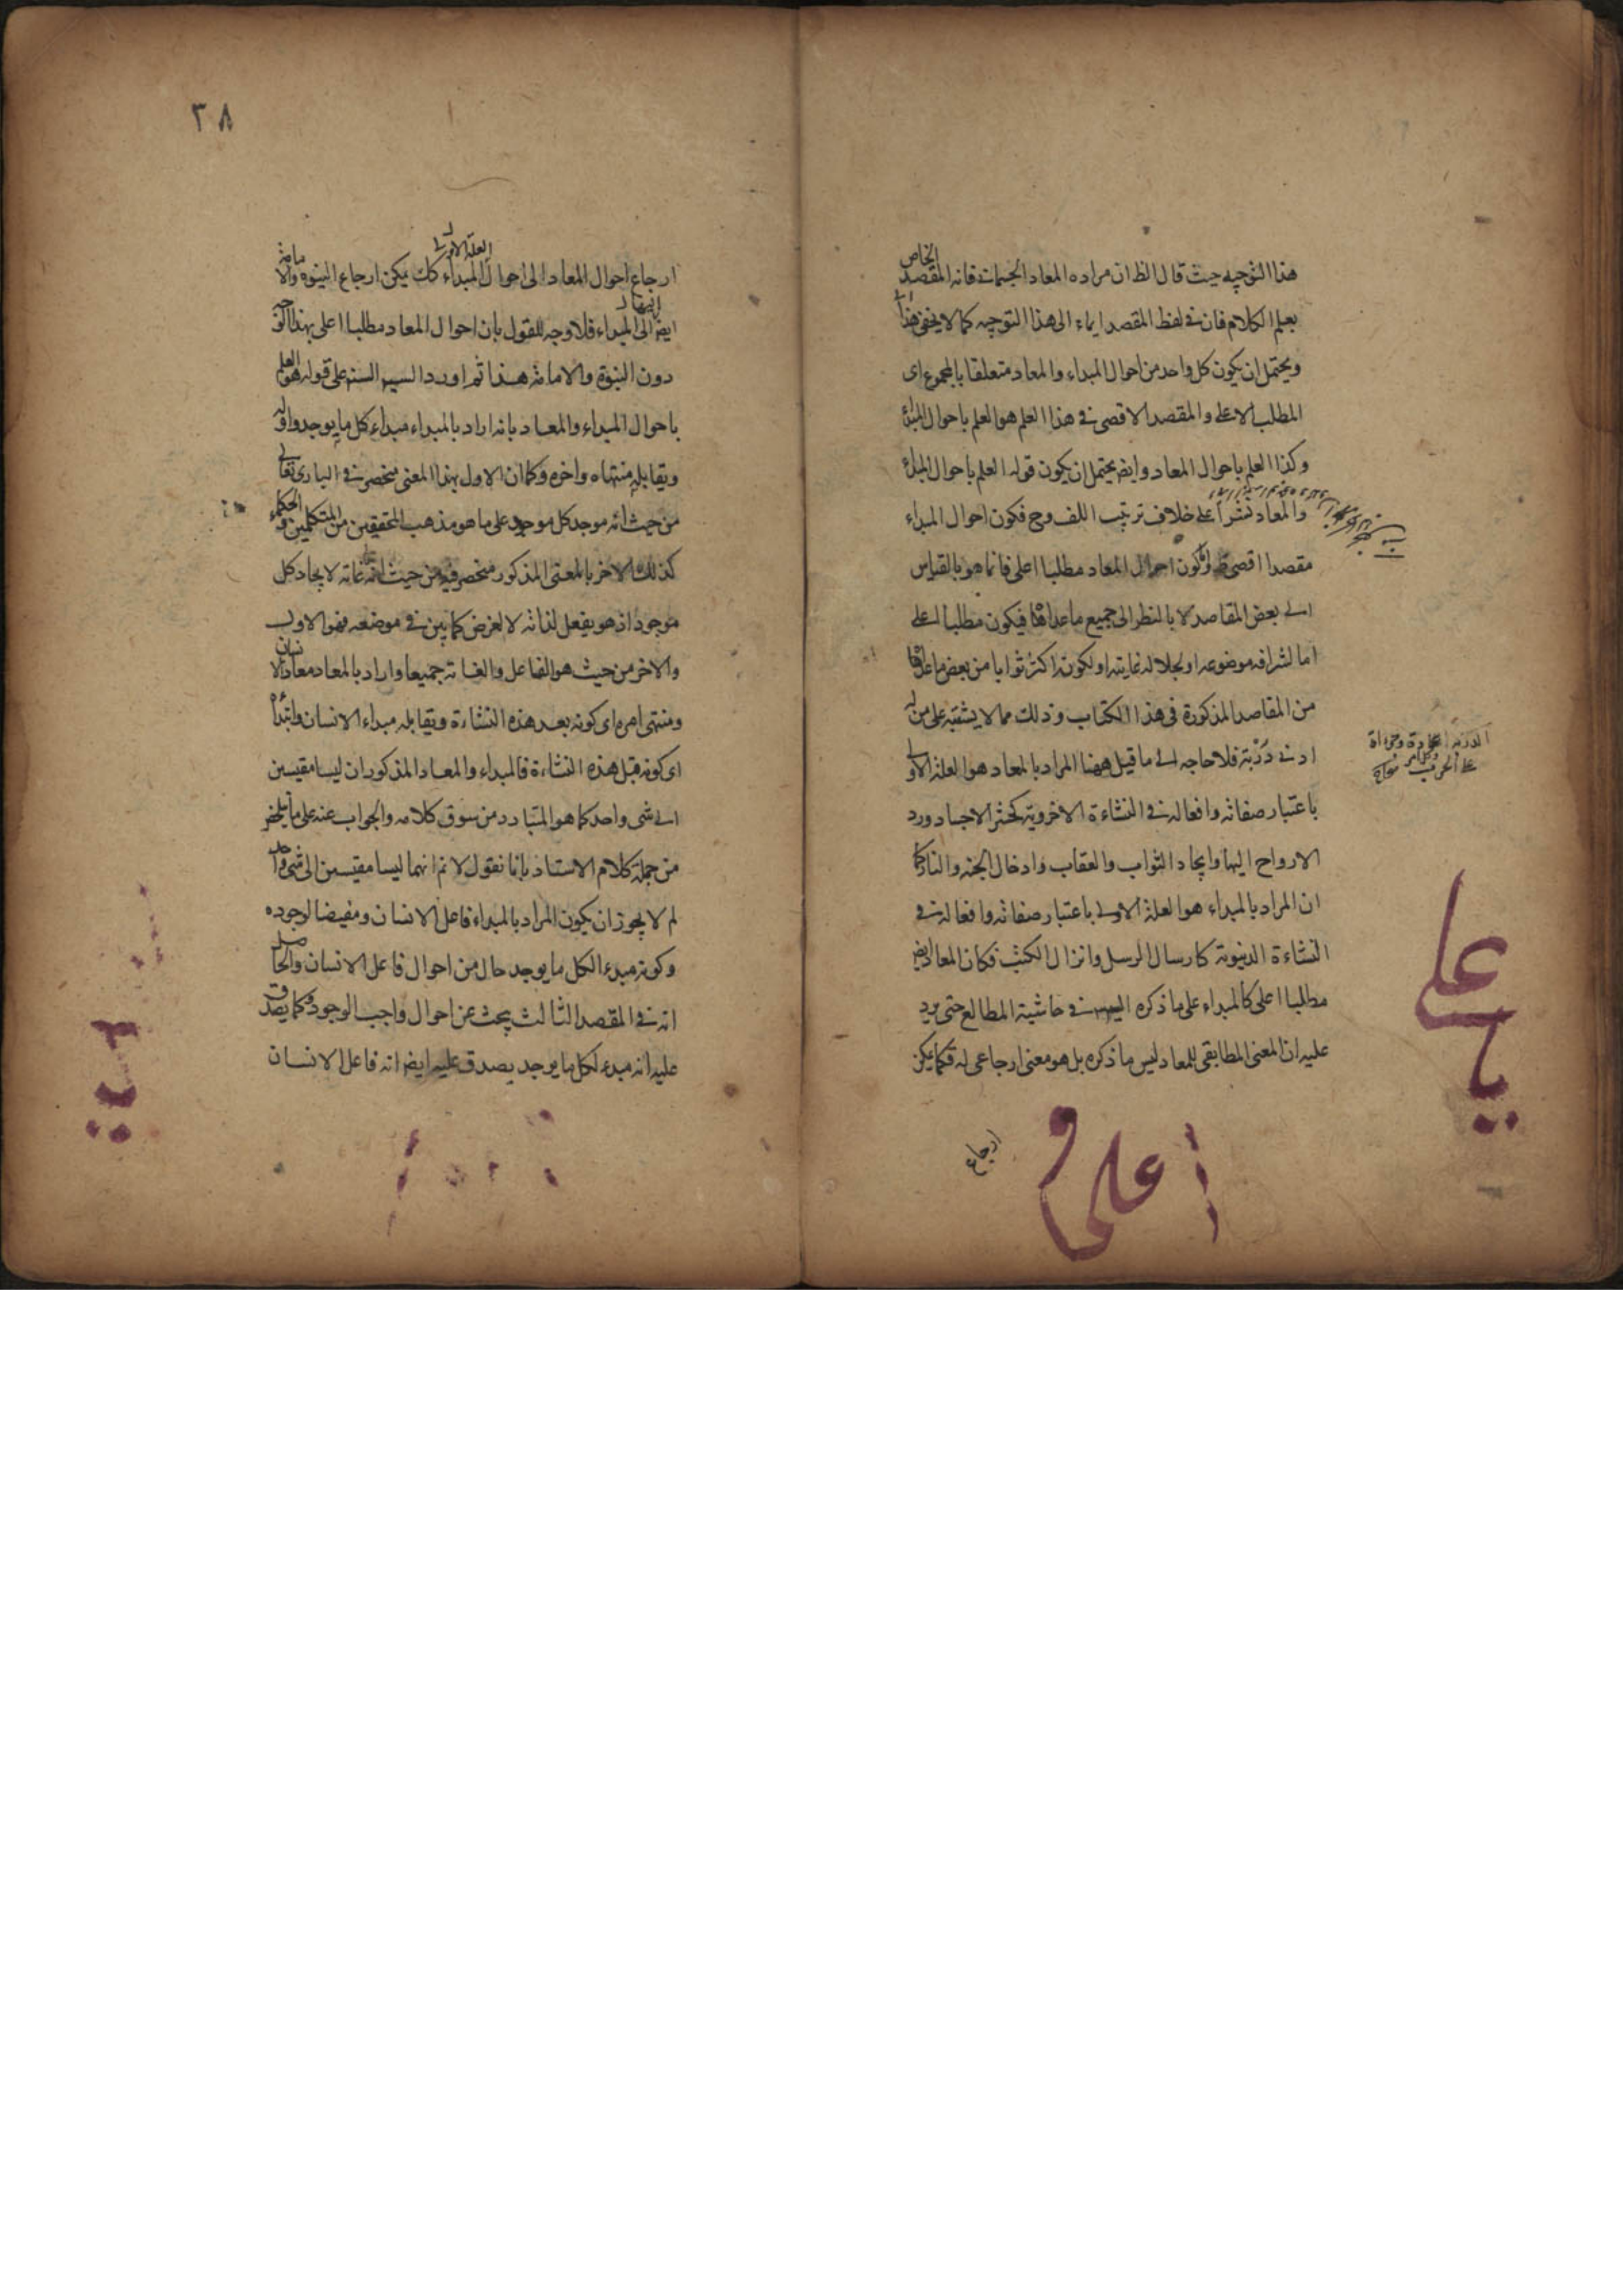 هذا التوجيه حيث قال الظ ان مراده المعاد الجسمانى فانه المقصد الخاص
بعلم الكلام فان فى لفظ المقصد ايماء الى هذا التوجيه كما لا يخفى هذا
ويحتمل ان يكون كل واحد من احوال المبداء والمعاد متعلقا بالمجموع اى
المطلب الاعلى والمقصد الاقصى فى هذا العلم هو العلم باحوال المبداء
وكذا العلم باحوال المعاد وايض يحتمل ان يكون قوله العلم باحوال المبداء
والمعاد نشرا على خلاف ترتيب اللف وح فكون احوال المبداء
مقصدا اقصى وكون احوال المعاد مطلبا اعلى فانما هو بالقياس
الى بعض المقاصد لا بالنظر الى جميع ما عداها فيكون مطلبا اعلى
اما لشرافه موضوعه او لجلاله غايته او لكونه اكثر ثوابا من بعض ما عداها
من المقاصد المذكورة فى هذا الكتاب وذلك مما لا يشتبه على من له
ادنى دربة فلا حاجه الى ما قيل ههنا المراد بالمعاد هو العلة الاولى
باعتبار صفاته وافعاله فى النشاءة الاخروية كحشر الاجساد ورد
الارواح اليها وايجاد الثواب والعقاب وادخال الجنه والنار كما
ان المراد بالمبداء هو العلة الاولى باعتبار صفاته وافعاله فى
النشاءة الدنيوية كارسال الرسل وانزال الكتب فكان المعاد ايض
مطلبا اعلى كالمبداء على ما ذكره السيد فى حاشية المطالع حتى يرد
عليه ان المعنى المطابقى للمعاد ليس ما ذكره بل هو معنى ارجاعى له فكما يمكن
ارجاع
الدربة عادة وجراة
على الحرب وكل امر
على
يا
على
٣٨
ارجاع احوال المعاد الى احوال المبداء العلة الاولى كك يمكن ارجاع النبوه والامامة
ايض الى احوال المبداء فلا وجه للقول بان احوال المعاد مطلبا اعلى بهذا الوجه
دون النبوة والامامة هذا ثم اورد السيد السند على قوله هو العلم
باحوال المبداء والمعاد بانه اراد بالمبداء مبداء كل ما يوجد واوله
ويقابله منتهاه واخره وكما ان الاول بهذا المعنى منحصر فى البارى تعالى
من حيث انه موجد كل موجود على ما هو مذهب المحققين من المتكلمين والحكماء
كذلك الاخر بالمعنى المذكور منحصر فيه من حيث انه غاية لايجاد كل
موجود اذ هو يفعل لذاته لا لغرض كما بين فى موضعه فهو الاول
والاخر من حيث هو الفاعل والغاية جميعا واراد بالمعاد معاد الانسان
ومنتهى امره اى كونه بعد هذه النشاءة ويقابله مبداء الانسان وابتداؤه
اى كونه قبل هذه النشاءة فالمبداء والمعاد المذكوران ليسا مقيسين
الى شى واحد كما هو المتبادر من سوق كلامه والجواب عنه على ما يلخص
من جملة كلام الاستاد بانا نقول لا نم انهما ليسا مقيسين الى شى واحد
لم لا يجوز ان يكون المراد بالمبداء فاعل الانسان ومفيضا لوجوده
وكونه مبدء الكل ما يوجد حال من احوال فاعل الانسان والحاصل
انه فى المقصد الثالث يبحث عن احوال واجب الوجود وكما يصدق
عليه انه مبدء لكل ما يوجد يصدق عليه ايض انه فاعل الانسان